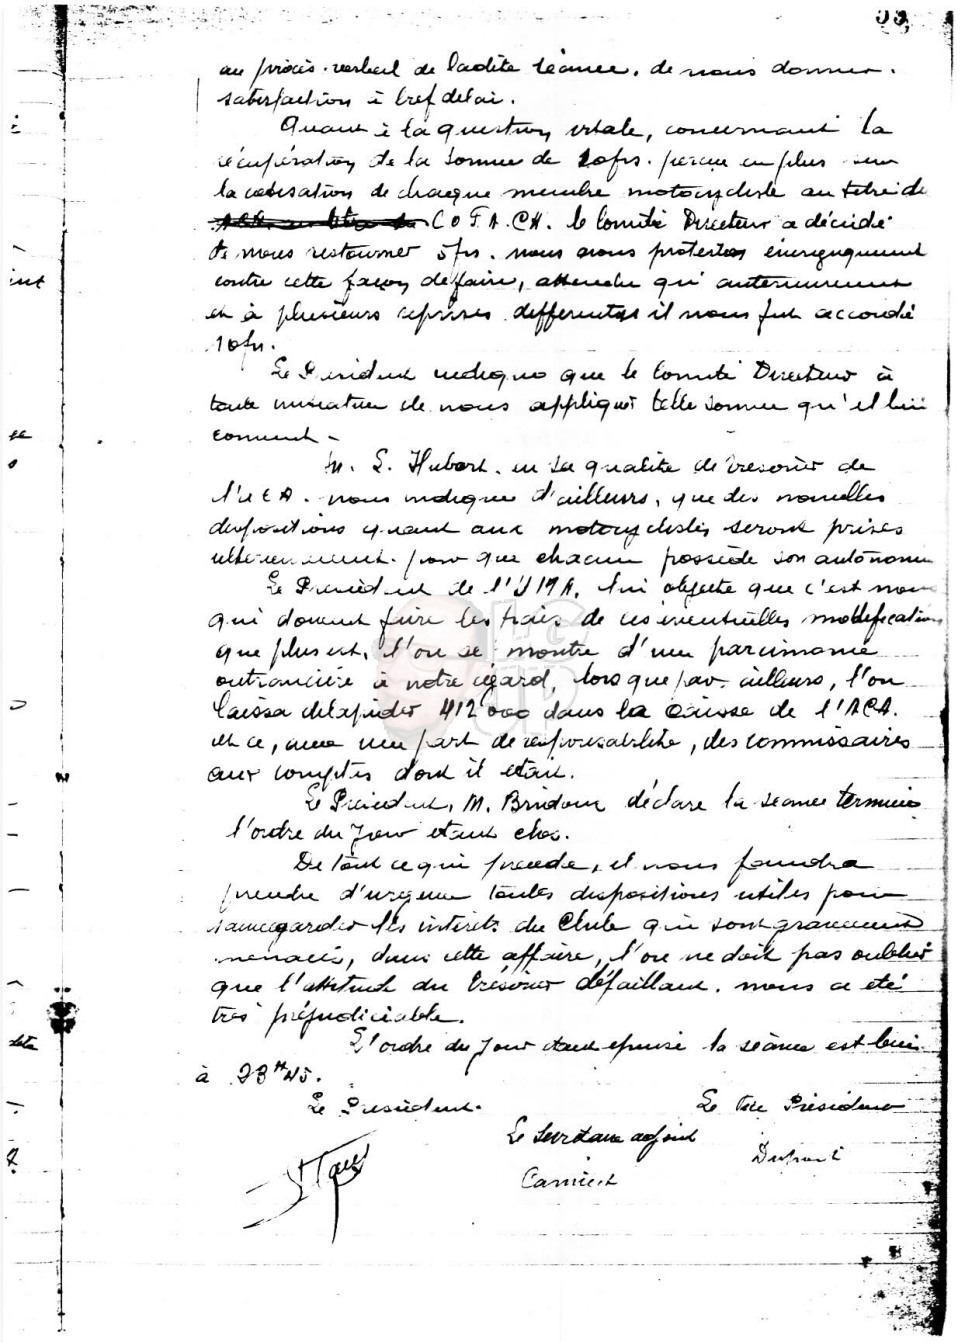 33,
au procès-verbal de ladite séance, de nous donner
satisfaction à bref délai.
Quant à la question vitale, concernant la
récupération de la somme de 10frs. perçue en plus sur
la cotisation de chaque membre motocycliste au titre de
C O F A. C A. le Comité Directeur a décidé
de nous restourner 5frs. nous avons protesté énergiquement
contre cette façon de faire, attendu qu'anterieurement
et à plusieurs reprises differentes il nous fut accordé
10frs.
Le President indique que le Comité Directeur à
toute de nous appliquer telle somme qu'il lui
convient -
M. L. Hubert. en sa qualite de tresorier de
l' nous indique d'ailleurs, que des nouvelles
dispositions quant aux motocyclistes seront prises
ultérieurement. pour que chacun possède son autonomie
Le President de l'UMA. lui objecte que c'est nous
qui doivent faire les frais de ces éventuelles modifications
que plus est, l'on se montre d'une parcimonie
outrancière à notre égard, lorsque par ailleurs, l'on
laissa dilapider 412000 dans la Caisse de l'ACA.
et ce, avec une part de responsabilité, des commissaires
aux comptes dont il etait.
Le President, M. déclare la séance terminée
l'ordre du jour etant clos.
De tout ce qui precede, il nous faudra
prendre d'urgence toutes dispositions utiles pour
sauvegarder les intérêts du Club qui sont gravement
menacés, dans cette affaire, l'on ne doit pas oublier
que l'attitude du trésorier défaillant. nous a été
très préjudiciable.
L'ordre du jour etant epuisé la séance est levée
à 23H45.
Le President. Le Vice Président
Le Secretaire adjoint